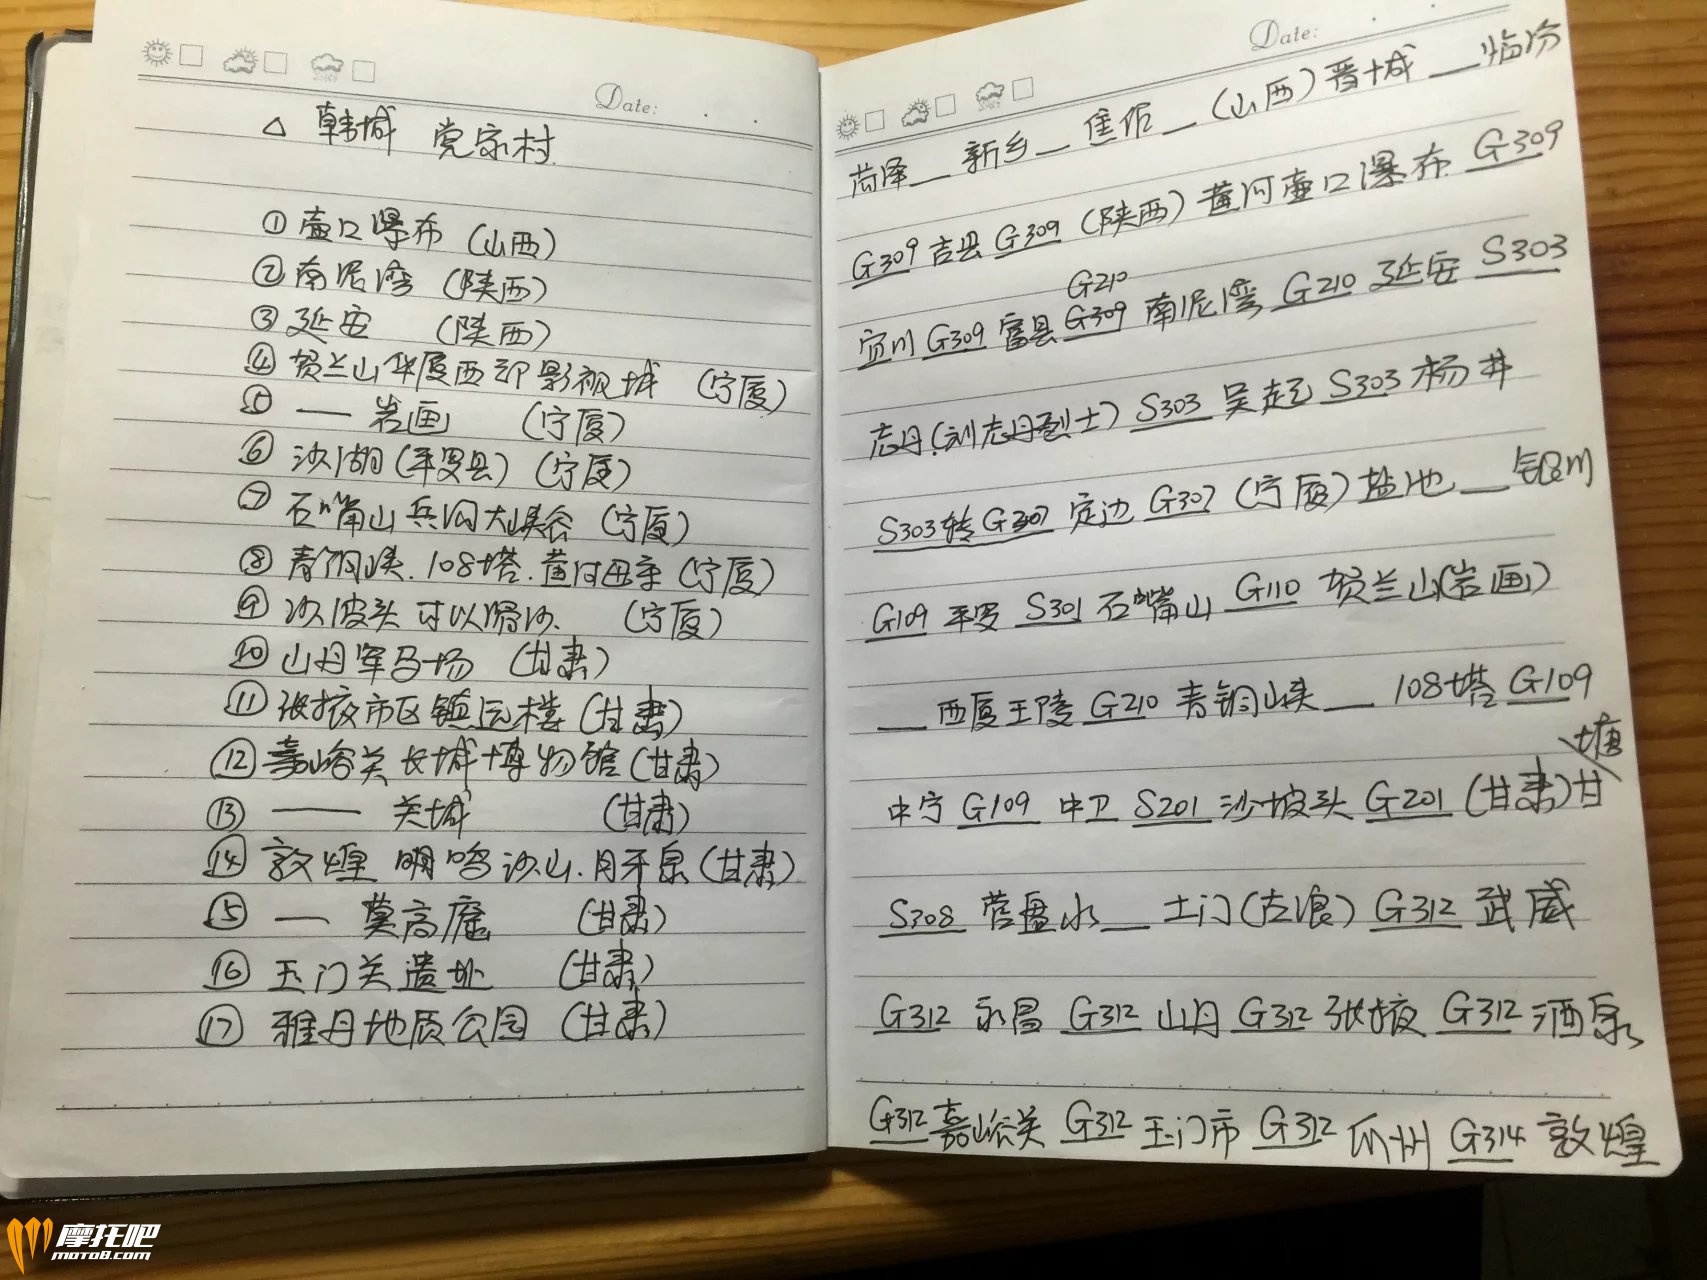 Date:
△ 韩城 党家村
① 壶口瀑布 (山西)
② 南泥湾 (陕西)
③ 延安 (陕西)
④ 贺兰山华夏西部影视城 (宁夏)
⑤ — 岩画 (宁夏)
⑥ 沙湖(平罗县) (宁夏)
⑦ 石嘴山兵沟大峡谷 (宁夏)
⑧ 青铜峡.108塔.黄河母亲 (宁夏)
⑨ 沙坡头 可以滑沙. (宁夏)
⑩ 山丹军马场 (甘肃)
⑪ 张掖市区镇远楼 (甘肃)
⑫ 嘉峪关长城博物馆 (甘肃)
⑬ —— 关城 (甘肃)
⑭ 敦煌 鸣沙山.月牙泉 (甘肃)
⑮ — 莫高窟 (甘肃)
⑯ 玉门关遗址 (甘肃)
⑰ 雅丹地质公园 (甘肃)
Date:
菏泽__新乡__焦作__(山西)晋城__临汾
G309 吉县 G309 (陕西) 黄河壶口瀑布 G309
G210
宜川 G309 富县 G309 南泥湾 G210 延安 S303
志丹(刘志丹烈士) S303 吴起 S303 杨井
S303转G307 定边 G307 (宁夏) 盐池__银川
G109 平罗 S301 石嘴山 G110 贺兰山(岩画)
__西夏王陵 G210 青铜峡__108塔 G109
中宁 G109 中卫 S201 沙坡头 G201 (甘肃)甘塘
S308 营盘水__土门(古浪) G312 武威
G312 永昌 G312 山丹 G312 张掖 G312 酒泉
G312 嘉峪关 G312 玉门市 G312 瓜州 G314 敦煌
摩托吧
MOTO8.COM